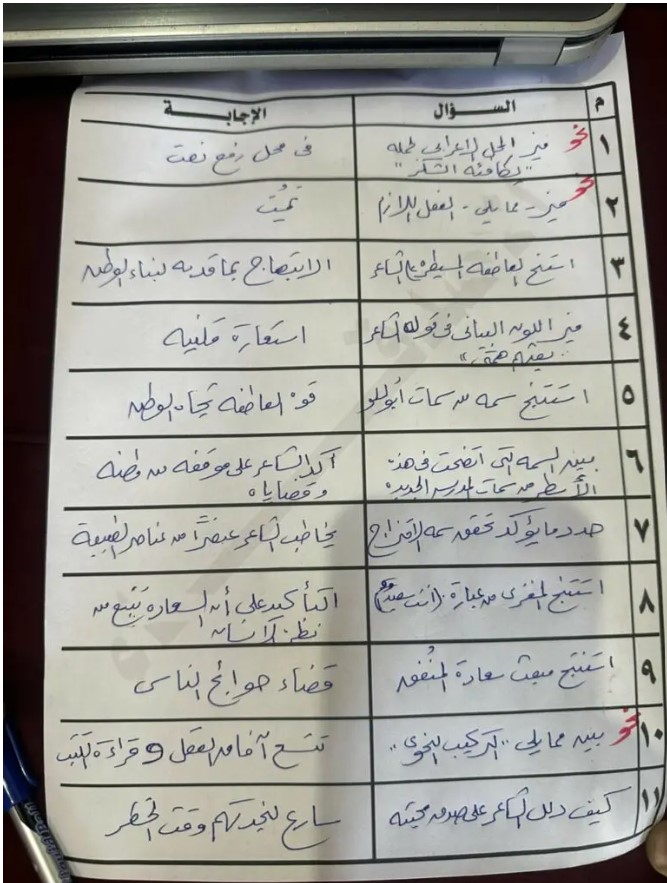 م السؤال الإجابة
١ نحو ميز المحل الإعرابي لجملة في محل رفع نعت
"يكافئه الشكر"
٢ نحو ميز - مما يلي - الفعل اللازم تميّت
٣ استنتج العاطفه المسيطرة على الشاعر الابتهاج بما قدمه لبناء الوطن
٤ ميز اللون البياني في قول الشاعر استعارة مكنية
همتي"
٥ استنتج سمه من سمات أبوللو قوة العاطفه تجاه الوطن
٦ بين السمه التي اتضحت في هذه أكد الشاعر على موقفه من وطنه
الأسطر من سمات المدرسه الجديده وقضاياه
٧ حدد ما يؤكد تحقق سمه الامتزاج يخاطب الشاعر عنصرًا من عناصر الطبيعة
٨ استنتج المغزى من عبارة (أنت سعيد) التأكيد على أن السعادة تنبع من
نظرة الإنسان
٩ استنتج مبعث سعادة المنفق قضاء حوائج الناس
١٠ نحو بين مما يلي "التركيب النحوي" تتسع آفاق العقل و قراءة الكتب
١١ كيف دلل الشاعر على صدق محبته سارع لنجدتهم وقت الخطر